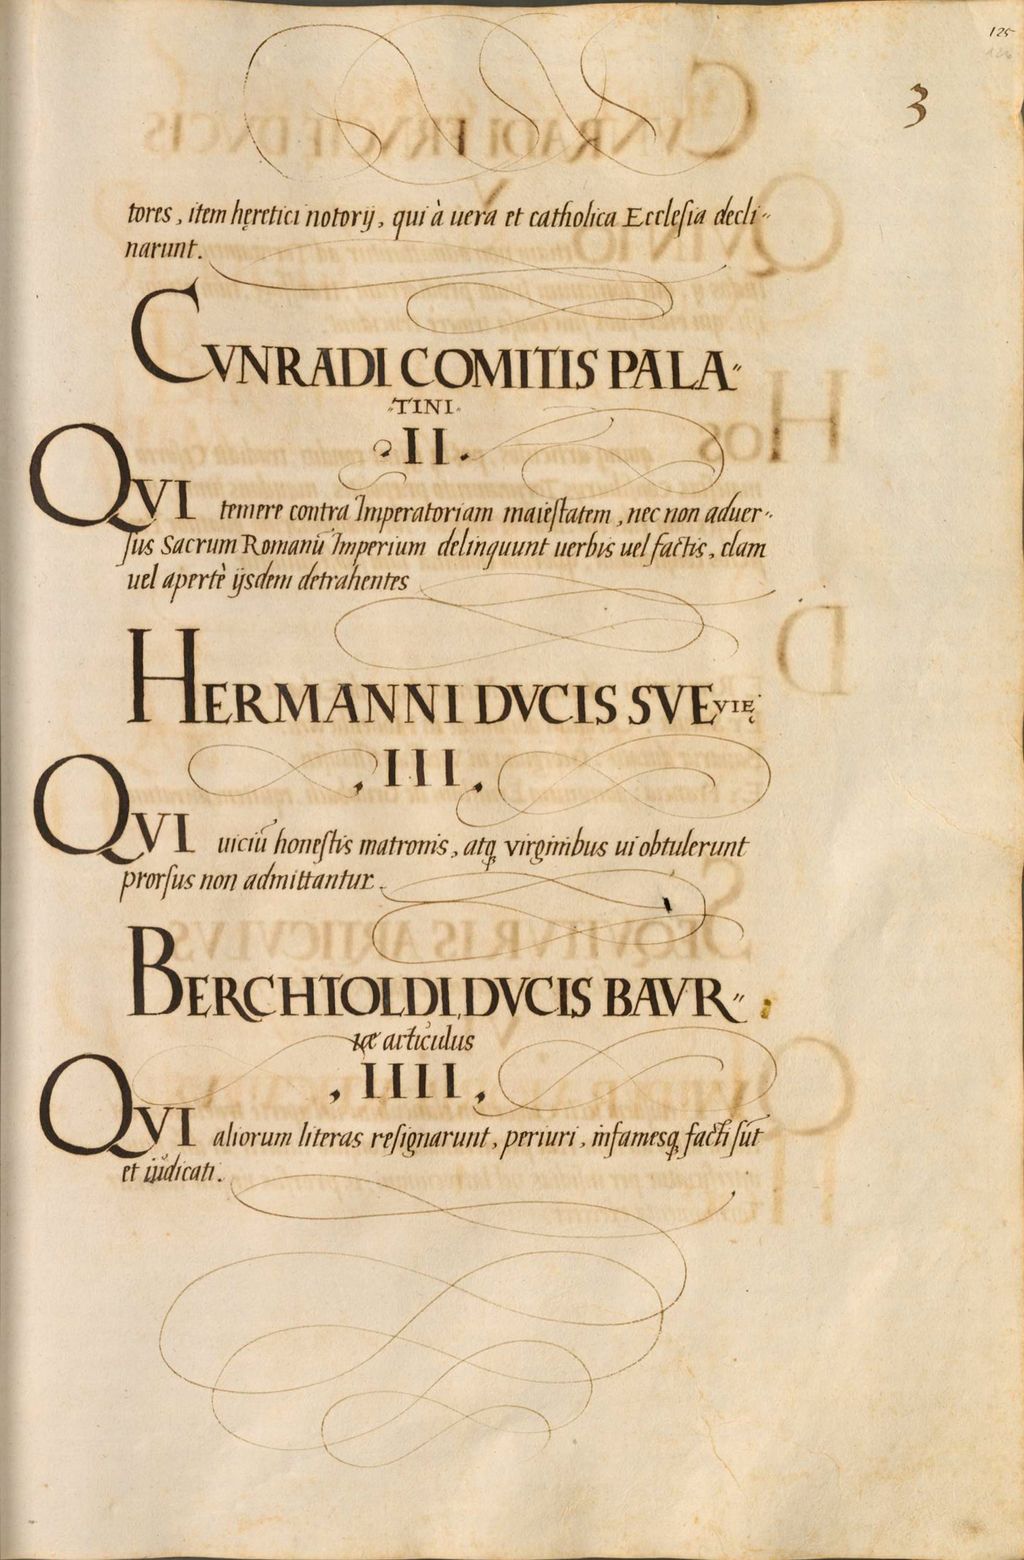 125
3
tores, item hęretici notorij, qui à uera et catholica Ecclesia decli〃
narunt.
CVNRADI COMITIS PALA〃
TINI.
II.
QVI temere contra Imperatoriam maiestatem, nec non aduer〃
sus Sacrum Romanū Imperium delinquunt uerbis uel factis, clam
uel apertè ijsdem detrahentes
HERMANNI DVCIS SVEVIĘ
, III,
QVI uiciū honestis matronis, atq; virginibus ui obtulerunt
prorsus non admittantur.
BERCHTOLDI, DVCIS BAVR〃
iæ articulus
, IIII,
QVI aliorum literas resignarunt, periuri, infamesq; facti sūt
et iudicati.